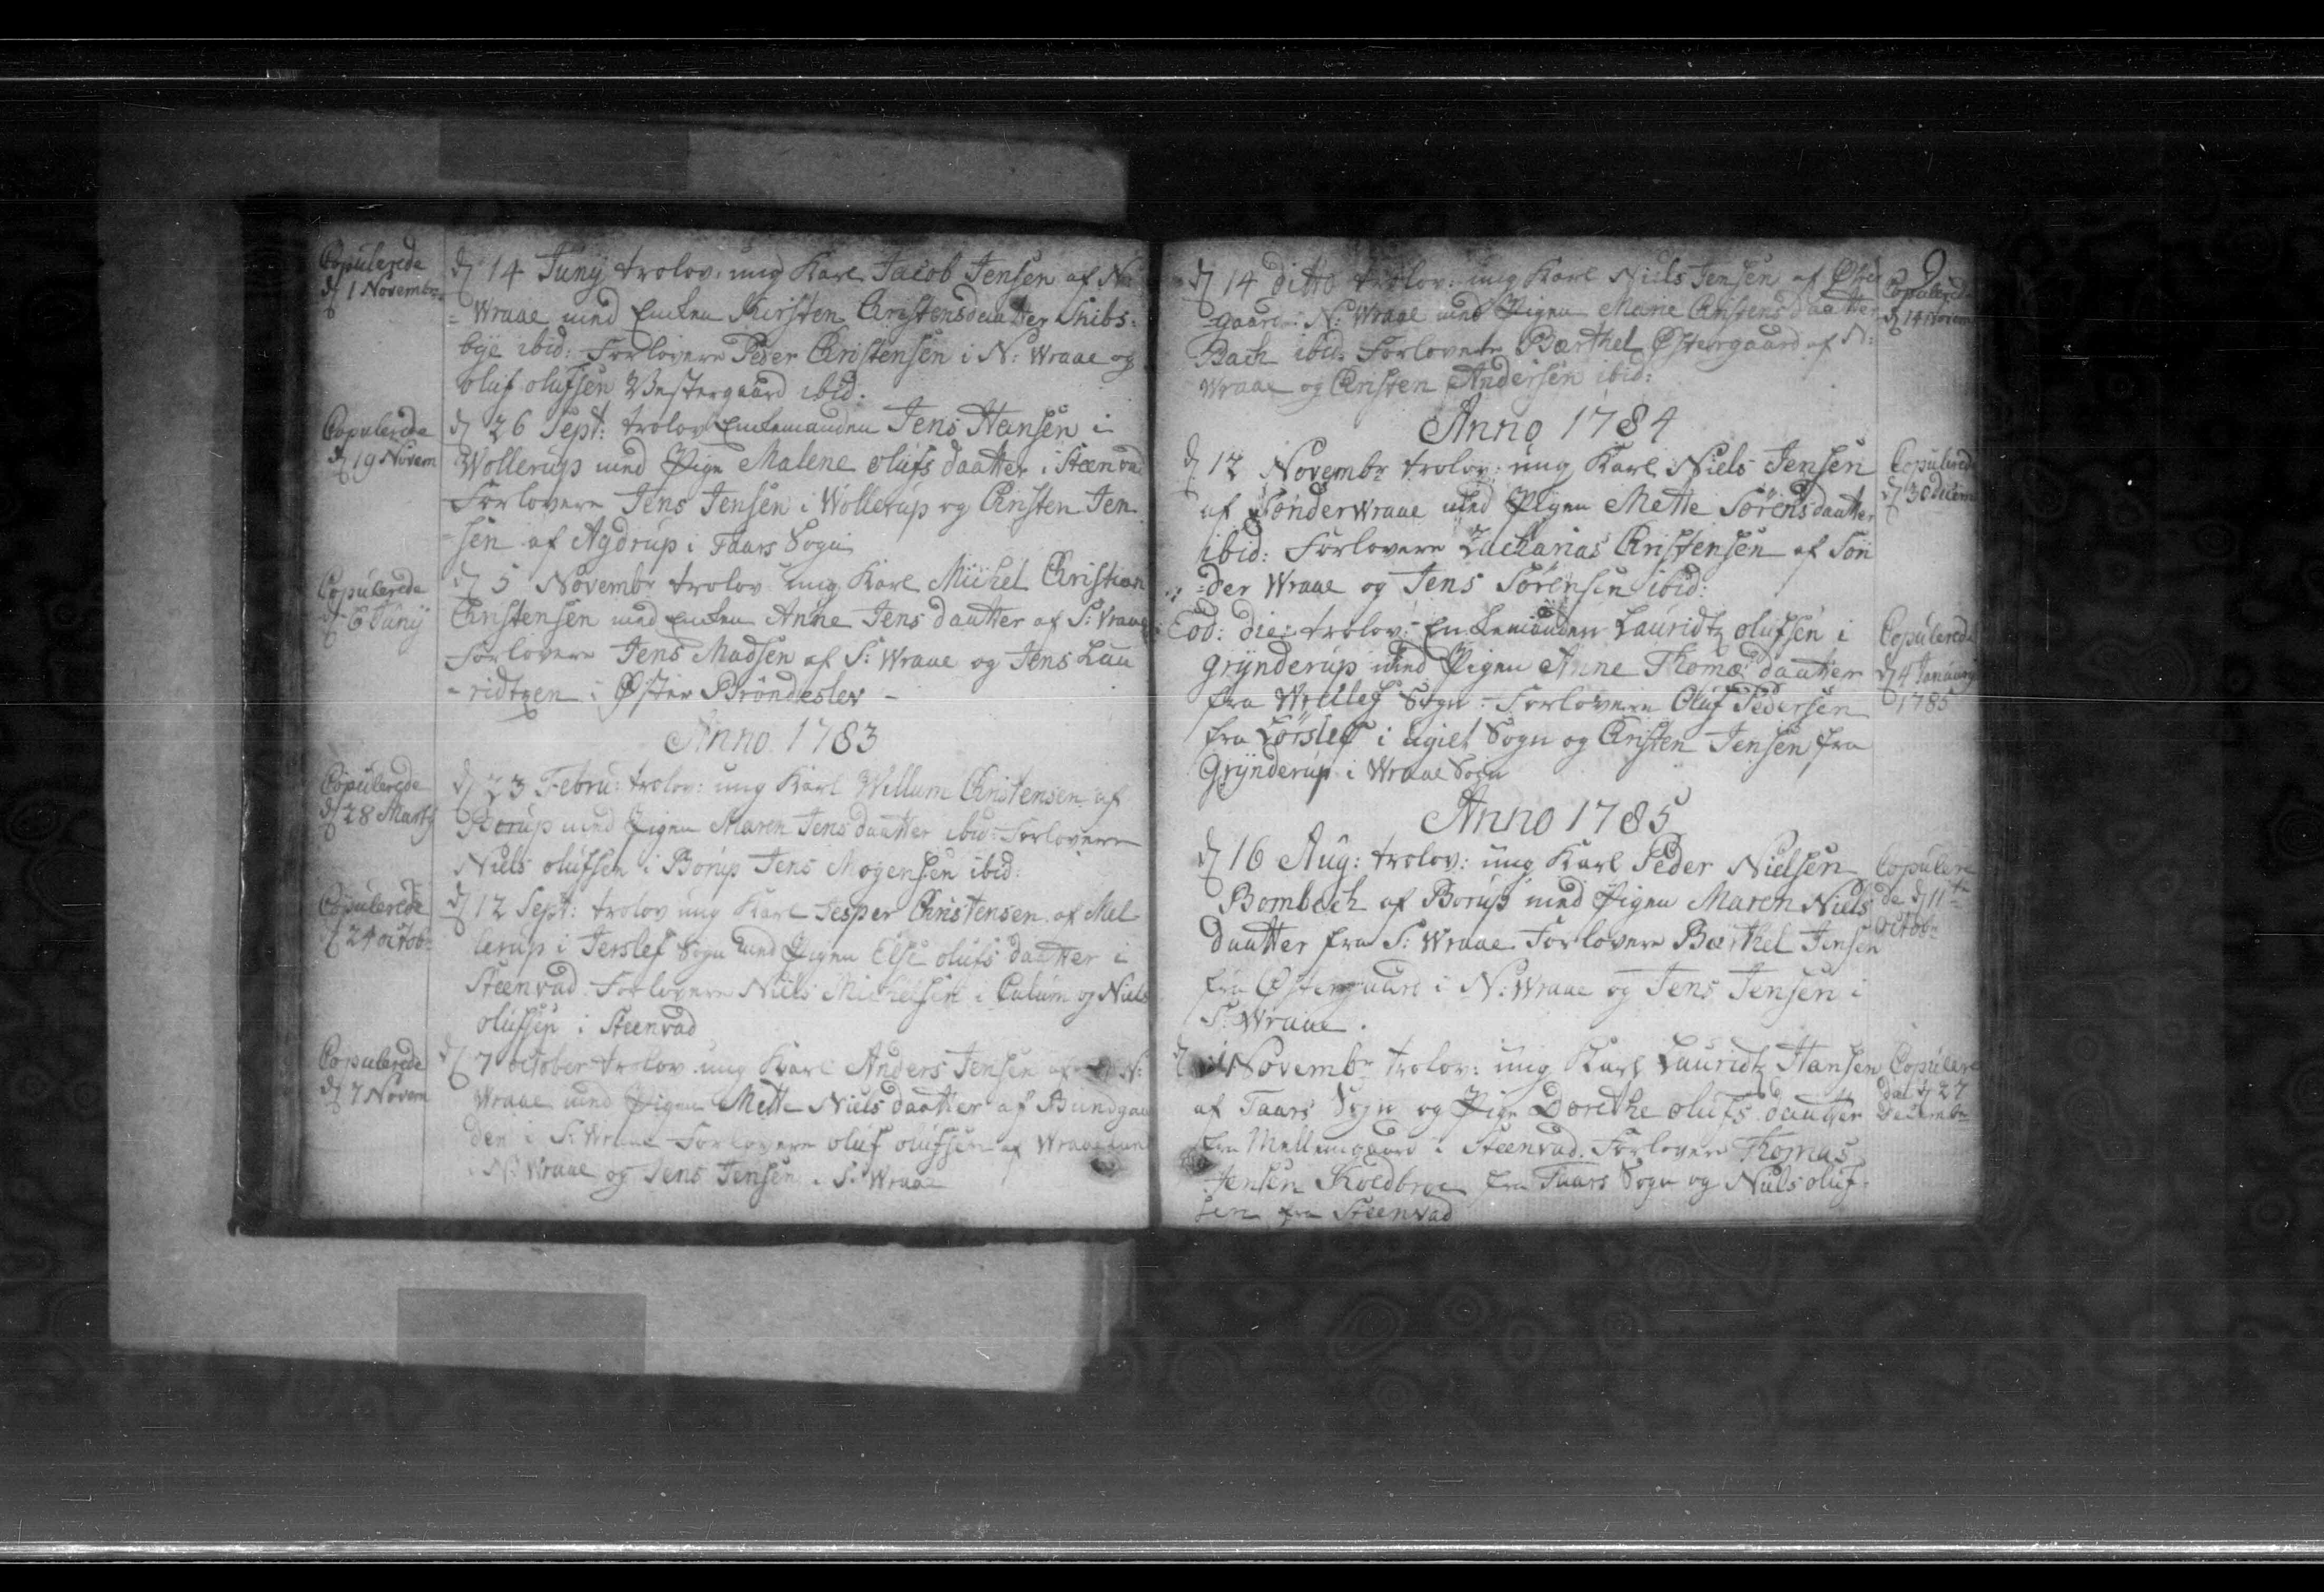 Copulerede
d 1 Novembr
d 14 Junÿ trolov: ung Karl Jacob Jensen af N:
Wraae med Enken Kirsten Christensdaatter Skibs:
bÿe ibid: Forlovere Peder Christensen i N: Wraae og
oluf olufsen Vestergaard ibid:
Copulerede
d 19 Novem
d 26 Sept: trolov Enkemanden Jens Hansen i
Wollerup med Pige Malene olufs daatter i Steenvad
Forlovere Jens Jensen i Wollerup og Christen Jen
=sen af Agdrup i Taars Sogn
Copulerede
d 6 Junÿ
d 5 Novembr trolov ung Karl Michel Christian
Christensen med Enken Anne Jens daatter af S: Vraae
Forlovere Jens Madsen af S: Wraae og Jens Lau
-ridtzen i Øster Brönderslev -
Anno 1783
Copulerede
d 28 Martÿ
d 23 Febru: trolov: ung Karl Willum Christensen af
Borup med Pigen Maren Jens daatter ibid: Forlovere
Niels olufsen i Borup Jens Mogensen ibid:
Copulerede
d 24 octobr
d 12 Sept: trolov ung Karl Jesper Christensen af Mel
lerup i Jerslef Sogn med Pigen Else olufs daatter i
Steenvad Forlovere Niels Michelsen i Culum og Niels
olufsen i Steenvad
Copulerede
d 7 Novem
d 7 october trolov ung Karl Anders Jensen af N:
Wraae med Pigen Mette Niels daatter af Bundgaar
den i S: Wraae Forlovere oluf olufsen af
i N: Wraae og Jens Jensen i S: Wraae
9
d 14 ditto trolov: ung Karl Niels Jensen af Øster
gaard i N: Wraae med Pigen Marie Christens daatter
Bach ibid: Forlovere Barthel Østergaard af N:
Wraae og Christen Andersen ibid:
Copulerede
d 14 Novem
Anno 1784
d 12 Novembr trolov: ung Karl Niels Jensen
af Sönderwraae med Pigen Mette Sörens daatter
ibid: Forlovere Zacharias Christensen af Sön
=der Wraae og Jens Sörensen ibid:
Copulerede
d 30 Decem
Eod: die: trolov: Enkemanden Lauridtz olufsen i
Grÿnderup med Pigen Anne Thomæ daatter
fra Sogn - Forlovere Oluf Pedersen
fra Lörslef i ugilt Sogn og Christen Jensen fra
Grÿnderup i Wraae Sogn
Copulerede
d 4 Januarÿ
1785
Anno 1785
d 16 Aug: trolov: ung Karl Peder Nielsen
Bombech af Borup med Pigen Maren Niels
daatter fra S: Wraae Forlovere Barthel Jensen
fra Østergaard i N: Wraae og Jens Jensen i
S: Wraae.
Copulere
de d 11te
octobr
d 1 Novembr trolov: ung Karl Lauridtz Hansen
af Taars Sogn og Pige Dorethe olufs daatter
fra Mellemgaard i Steenvad. Forlovere Thomas
Jensen Koldbroe fra Taars Sogn og Niels oluf-
sen fra Steenvad
Copulere
det d 27
Decembr